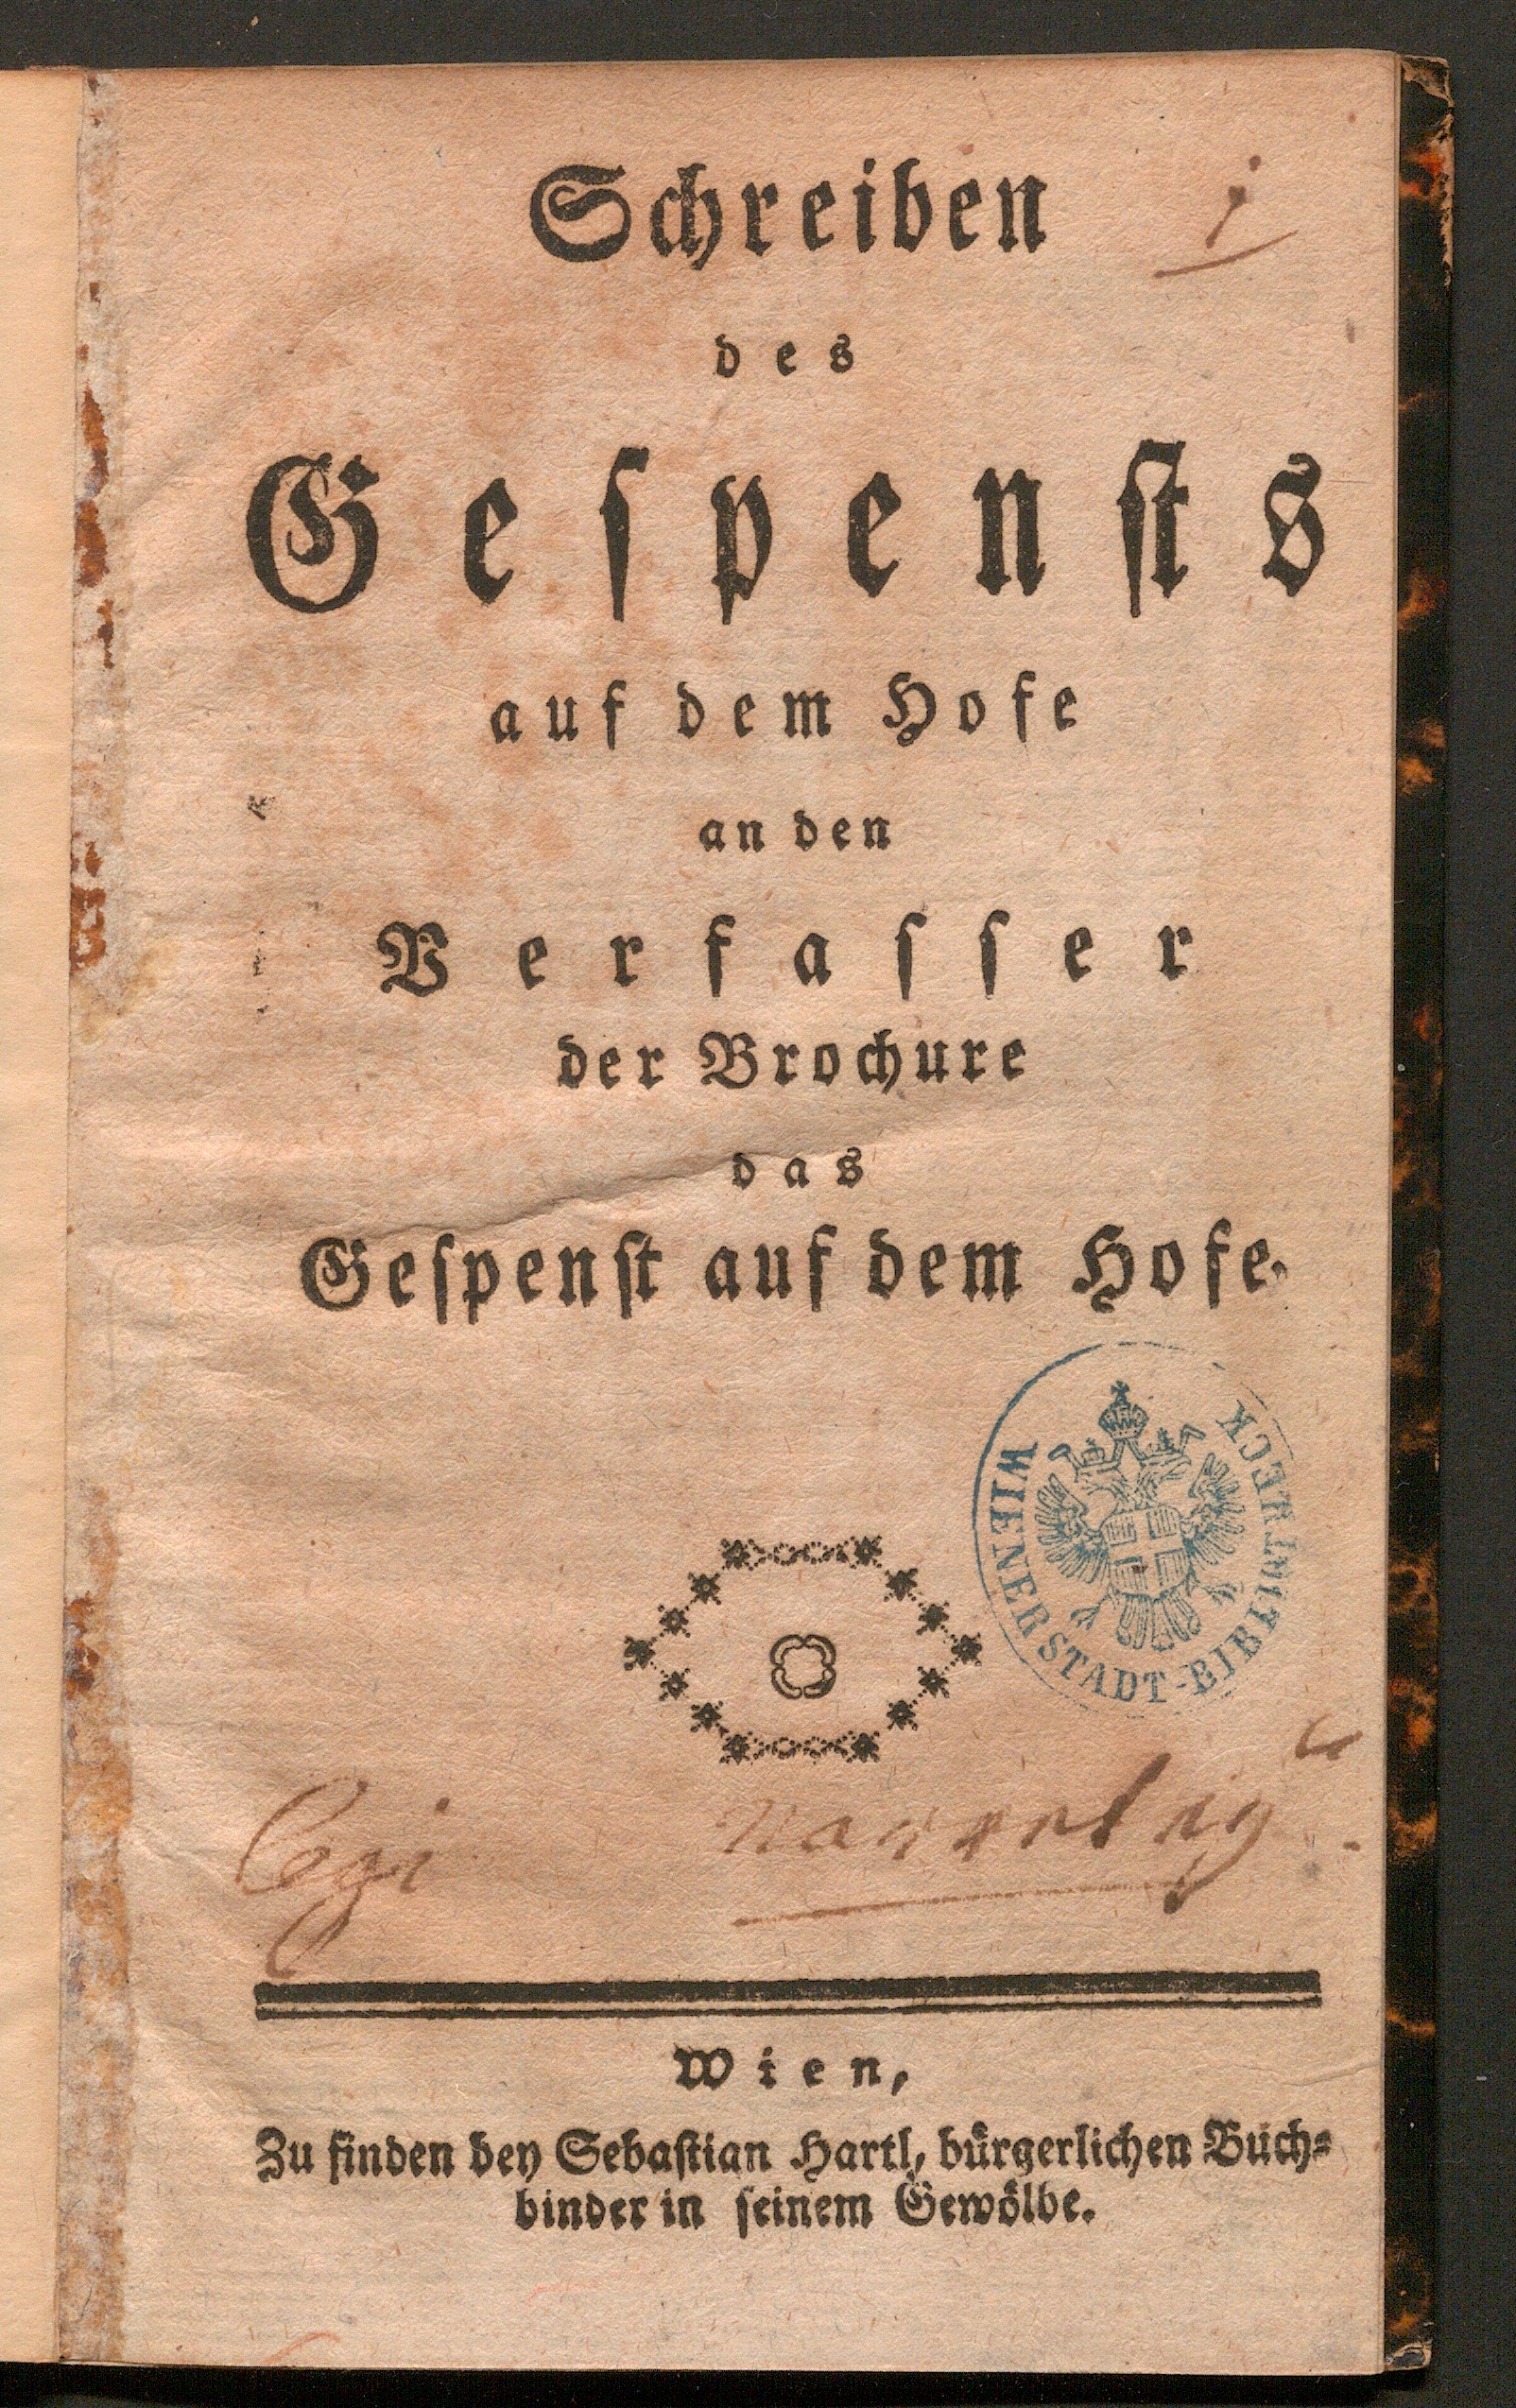 Schreiben
des
Geſpenſts
auf dem Hofe
an den
Verfaſſer
der Brochure
das
Geſpenſt auf dem Hofe.
WIENER STADT-BIBLIOTHECK
legi
Wien,
Zu finden bey Sebaſtian Hartl, bürgerlichen Buch-
binder in ſeinem Gewölbe.